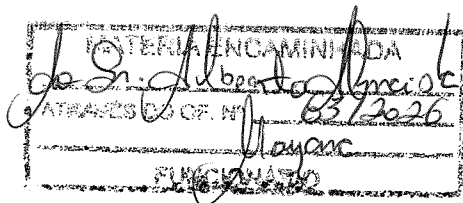 MATÉRIA ENCAMINHADA
Ao Sr. Alberto Almeida
ATRAVÉS DO OF. Nº 63/2026
Mayane
FUNCIONÁRIO